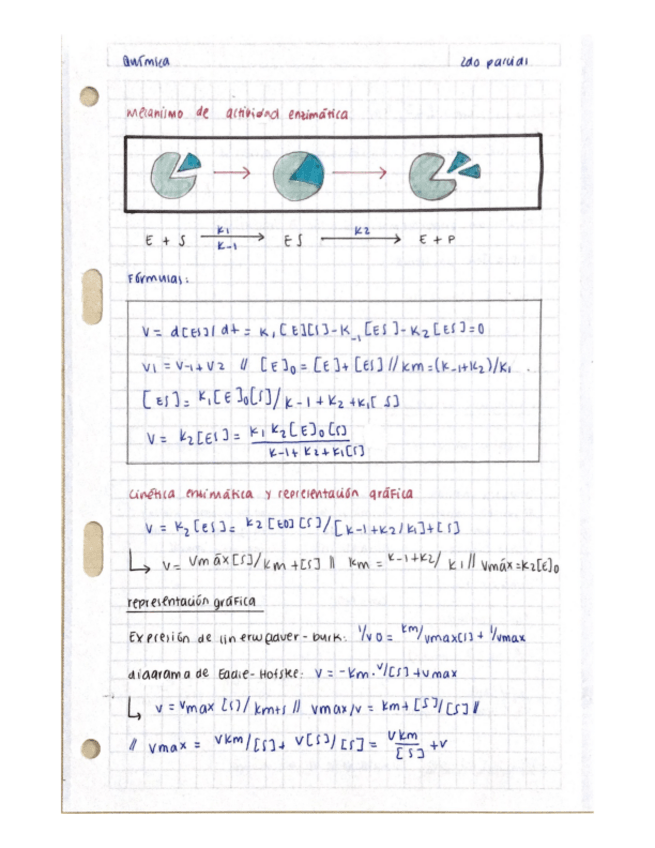 Química 2do parcial
mecanismo de actividad enzimática
E + S K1 K-1 ES K2 E + P
Fórmulas:
V = d[ES]/dt = K1[E][S]-K-1[ES]-K2[ES]=0
V1 = V-1+V2 // [E]0 = [E]+[ES] // Km=(K-1+K2)/K1
[ES]= K1[E]0[S]/K-1+K2+K1[S]
V = K2[ES] = K1 K2[E]0[S]
K-1+K2+K1[S]
cinética enzimática y representación gráfica
V = K2[ES]= K2[E0][S]/[K-1+K2/K1]+[S]
V= Vmáx[S]/Km+[S] // Km = K-1+K2/K1 // Vmáx=K2[E]0
representación gráfica
Expresión de linerweaver-burk: 1/V0 = Km/Vmax[S] + 1/Vmax
diagrama de Eadie-Hofske: V = -Km·V/[S]+Vmax
V = Vmax [S]/Km+S // Vmax/V = Km+[S]/[S] //
// Vmax = VKm/[S]+ V[S]/[S] = VKm/[S] +V